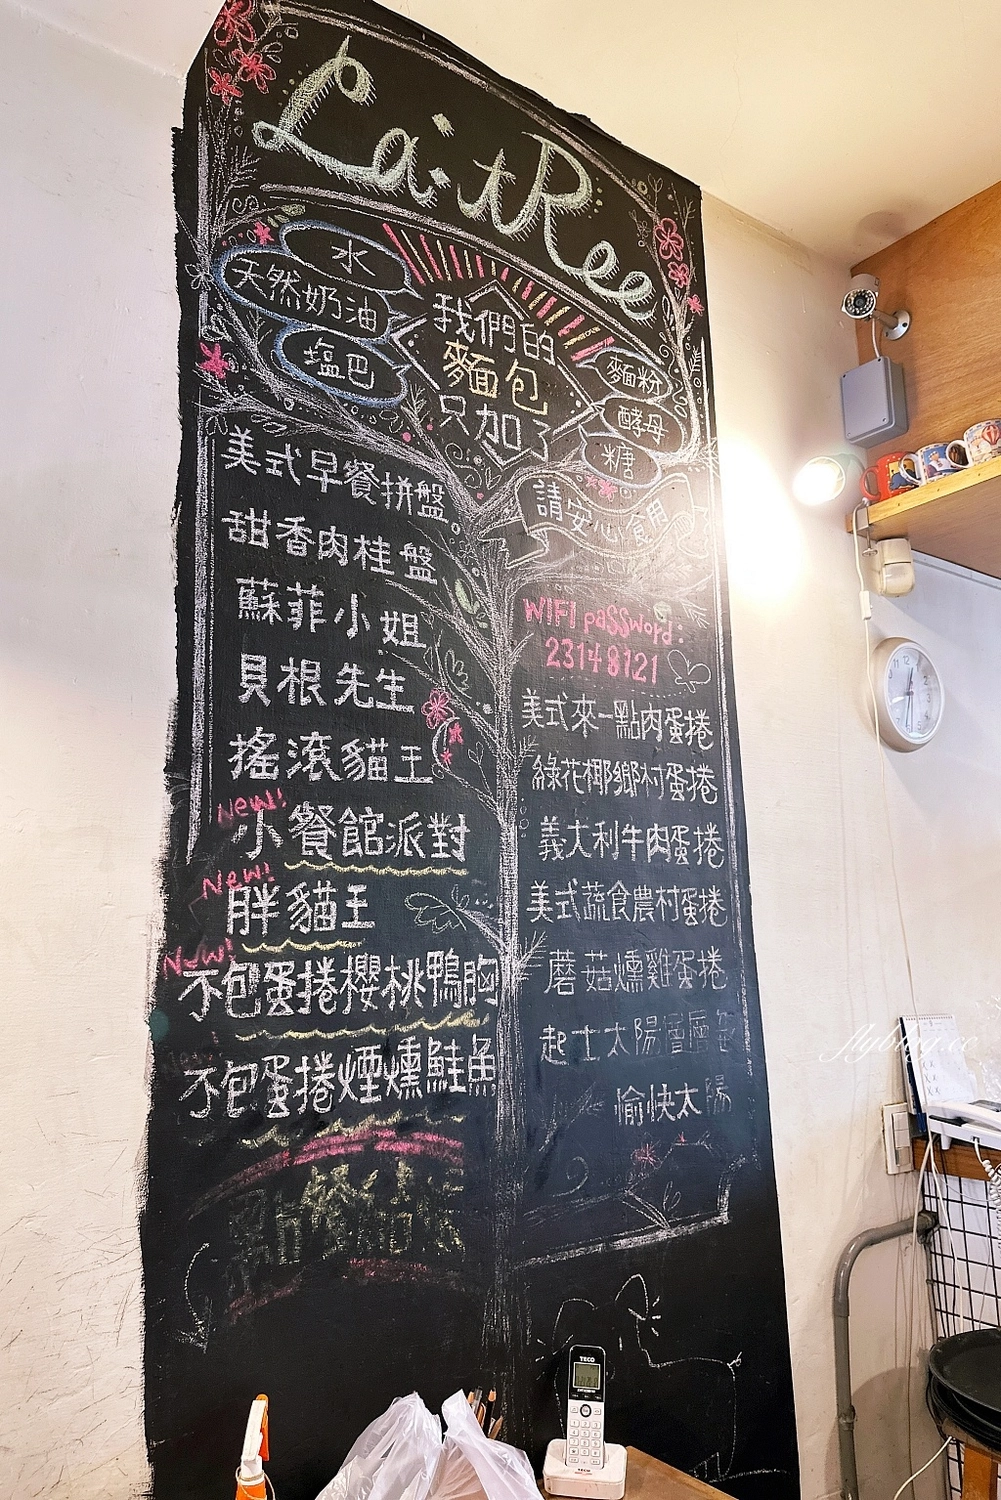 La.tRee
水
天然奶油
塩巴
我們的
麵包
只加了
麵粉
酵母
糖
請安心食用
美式早餐拼盤
甜香肉桂盤
蘇菲小姐
貝根先生
搖滾貓王
New!
小餐館派對
New!
胖貓王
New!
不包蛋捲櫻桃鴨胸
New!
不包蛋捲煙燻鮭魚
WIFI password:
23148121
美式來一點肉蛋捲
綠花椰鄉村蛋捲
義大利牛肉蛋捲
美式蔬食農村蛋捲
蘑菇燻雞蛋捲
起士太陽層層
愉快太陽
TECO
flyblog.cc